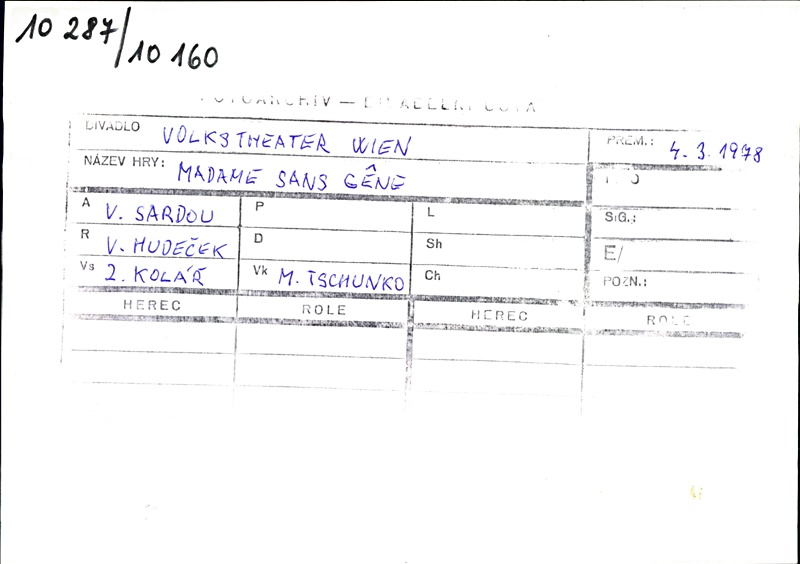 10 287/10 160
FOTOARCHIV —
DIVADLO VOLKSTHEATER WIEN PREM.: 4. 3. 1978
NÁZEV HRY: MADAME SANS GÊNE
A V. SARDOU P L SIG.:
R V. HUDEČEK D Sh E/
Vs Z. KOLÁŘ Vk M. TSCHUNKO Ch POZN.:
HEREC ROLE HEREC ROLE